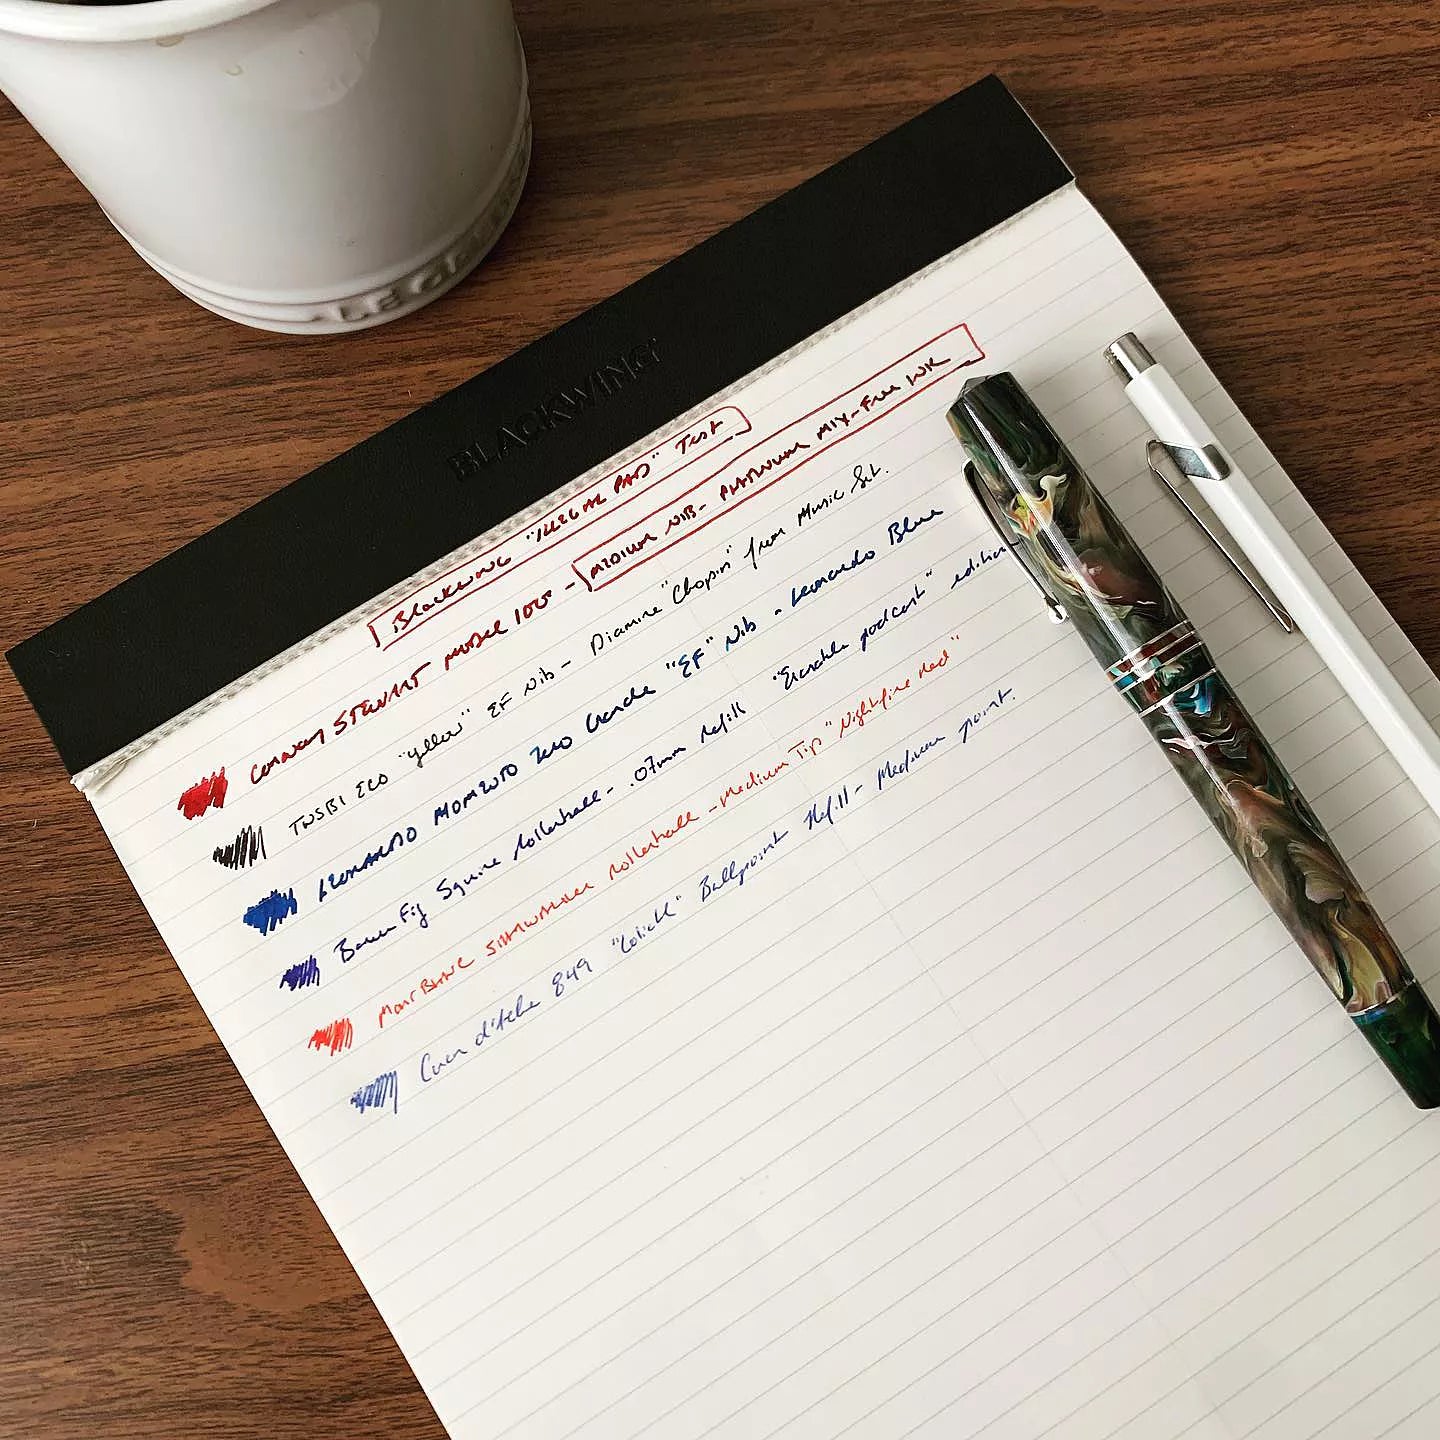 LE CREUSET
BLACKWING
BLACKWING "ILLEGAL PAD" TEST
CONWAY STEWART MODEL 100 - MEDIUM NIB - PLATINUM MIX-FREE INK
TWSBI ECO "yellow" EF Nib - Diamine "Chopin" from Music Set.
LEONARDO MOMENTO ZERO Grande "EF" Nib - Leonardo Blue
Baron Fig Squire Rollerball - .07mm refill "Erasable podcast" edition
MONTBLANC STARWALKER Rollerball - Medium Tip "Nightfire Red"
Caran d'Ache 849 "Colick" Ballpoint Refill - Medium point.